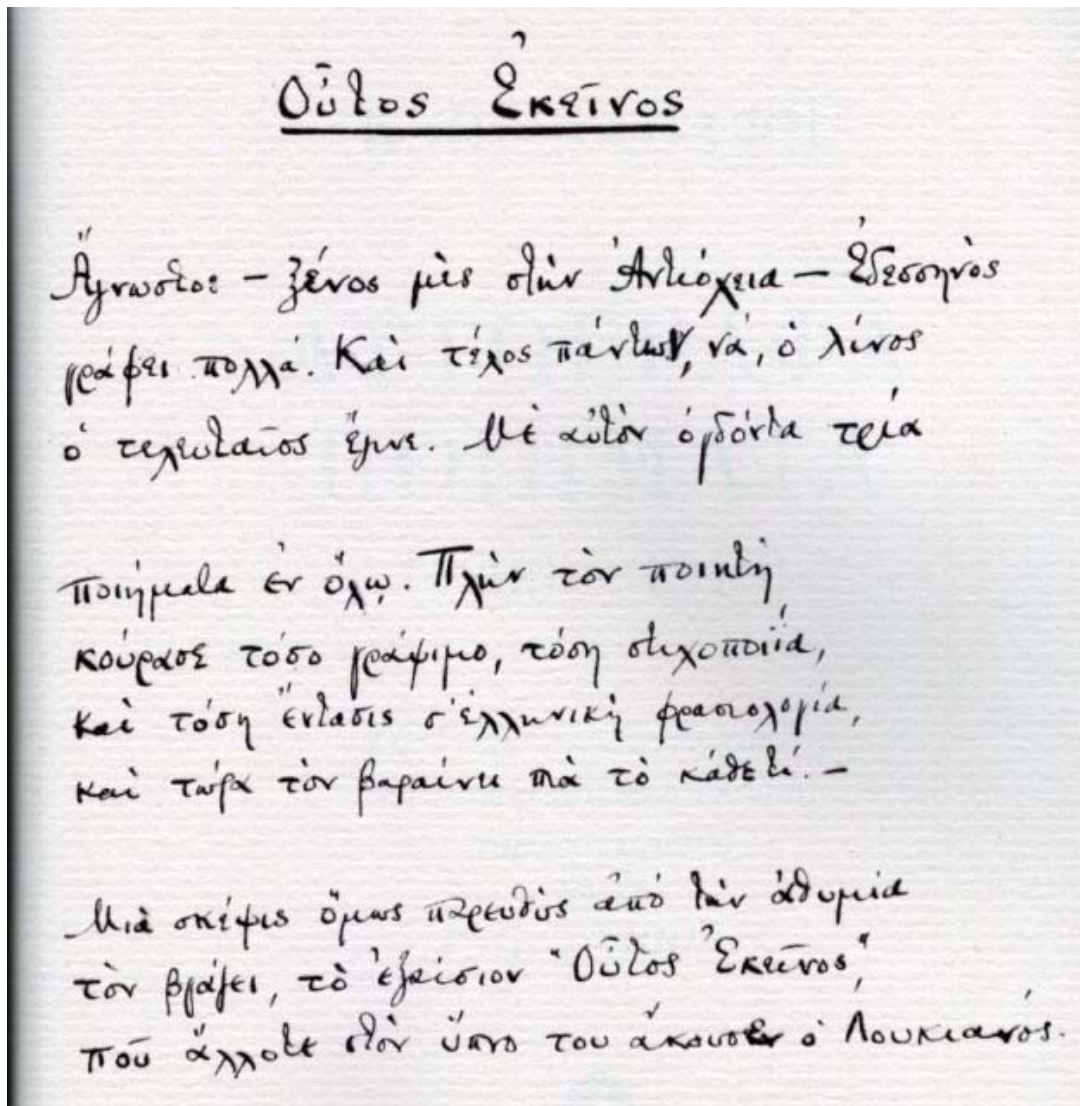 Οὗτος Ἐκεῖνος
Ἄγνωστος – ξένος μὲς στὴν Ἀντιόχεια – Ἐδεσσηνὸς
γράφει πολλά. Καὶ τέλος πάντων, νά, ὁ λίνος
ὁ τελευταῖος ἔγινε. Μὲ αὐτὸν ὀγδόντα τρία
ποιήματα ἐν ὅλῳ. Πλὴν τὸν ποιητὴ
κούρασε τόσο γράψιμο, τόση στιχοποιΐα,
καὶ τόση ἔντασις σ' ἑλληνικὴ φρασιολογία,
καὶ τώρα τὸν βαραίνει πιὰ τὸ κάθε τί. –
Μιὰ σκέψις ὅμως παρευθὺς ἀπὸ τὴν ἀθυμία
τὸν βγάζει, τὸ ἐξαίσιον "Οὗτος Ἐκεῖνος",
ποῦ ἄλλοτε στὸν ὕπνο του ἄκουσεν ὁ Λουκιανός.